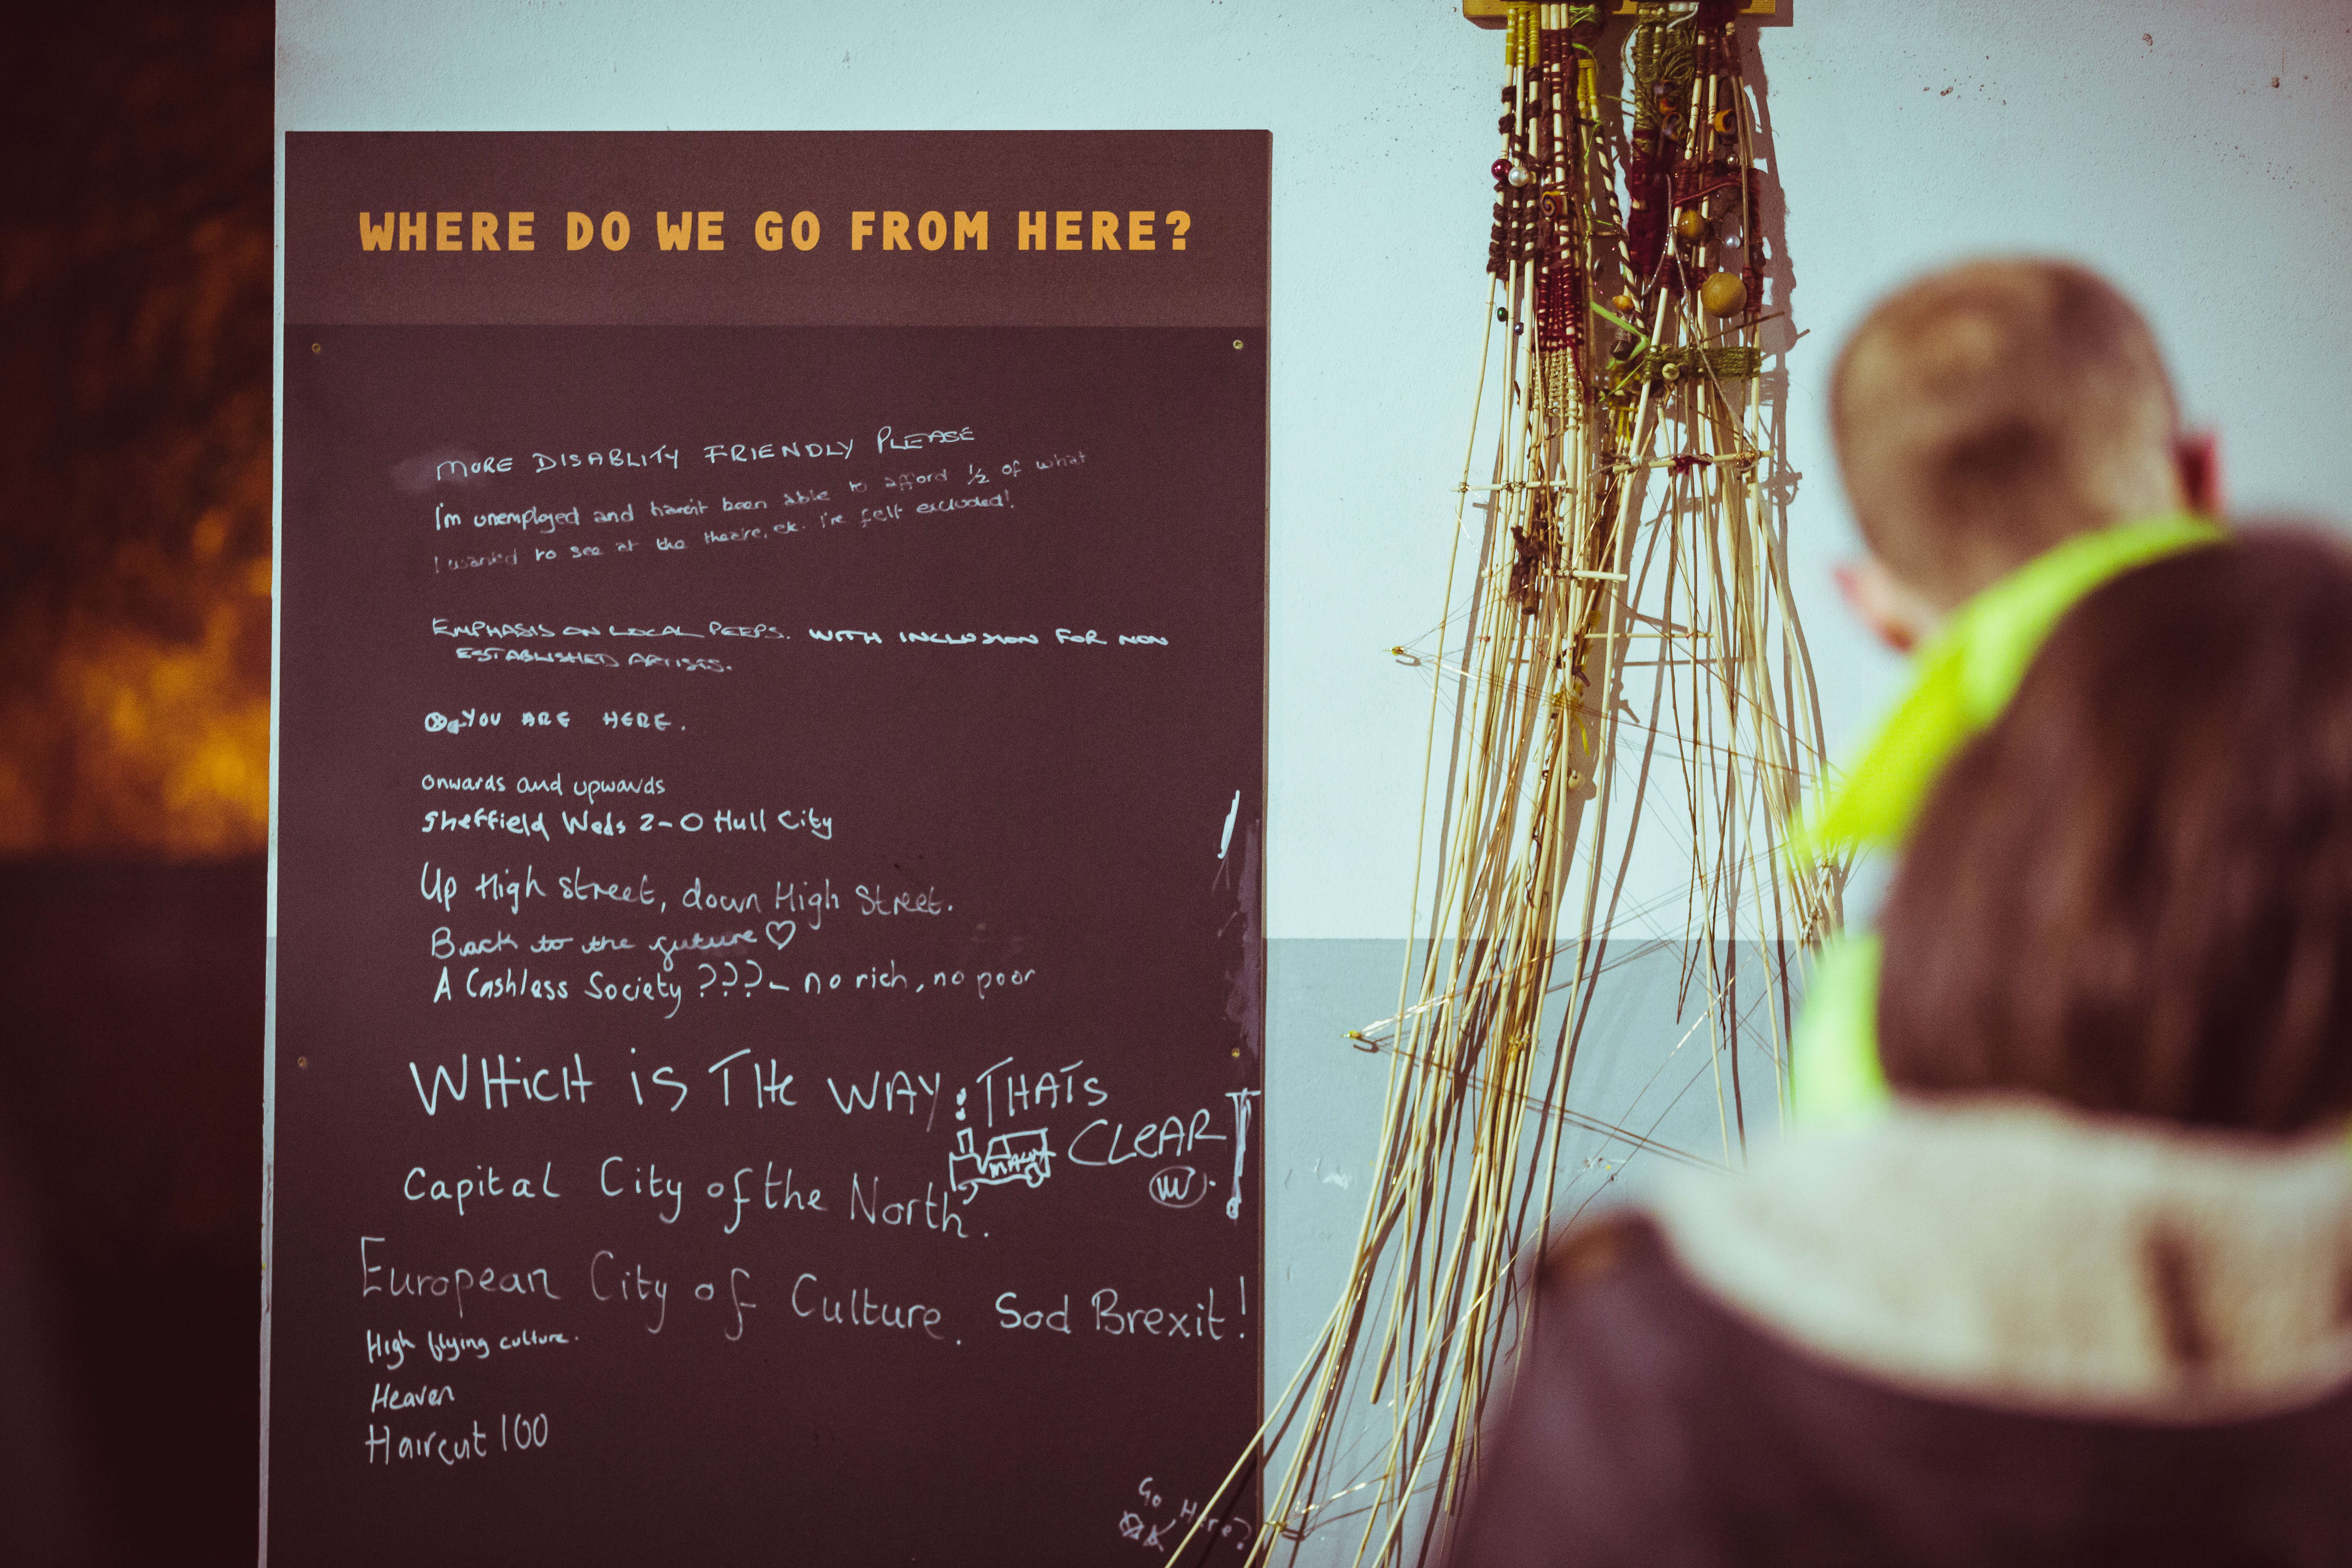 WHERE DO WE GO FROM HERE?
MORE DISABLITY FRIENDLY PLEASE
I'm unemployed and haven't been able to afford ½ of what
I wanted to see at the theatre, etc. I've felt excluded!
EMPHASIS ON LOCAL PEEPS. WITH INCLUSION FOR NON
ESTABLISHED ARTISTS.
YOU ARE HERE.
onwards and upwards
Sheffield Weds 2-0 Hull City
Up High street, down High Street.
Back to the future ♡
A Cashless Society ??? - no rich, no poor
WHICH IS THE WAY: THATS
CLEAR
Capital City of the North.
European City of Culture. Sod Brexit!
High flying culture.
Heaven
Haircut 100
Go
Here?